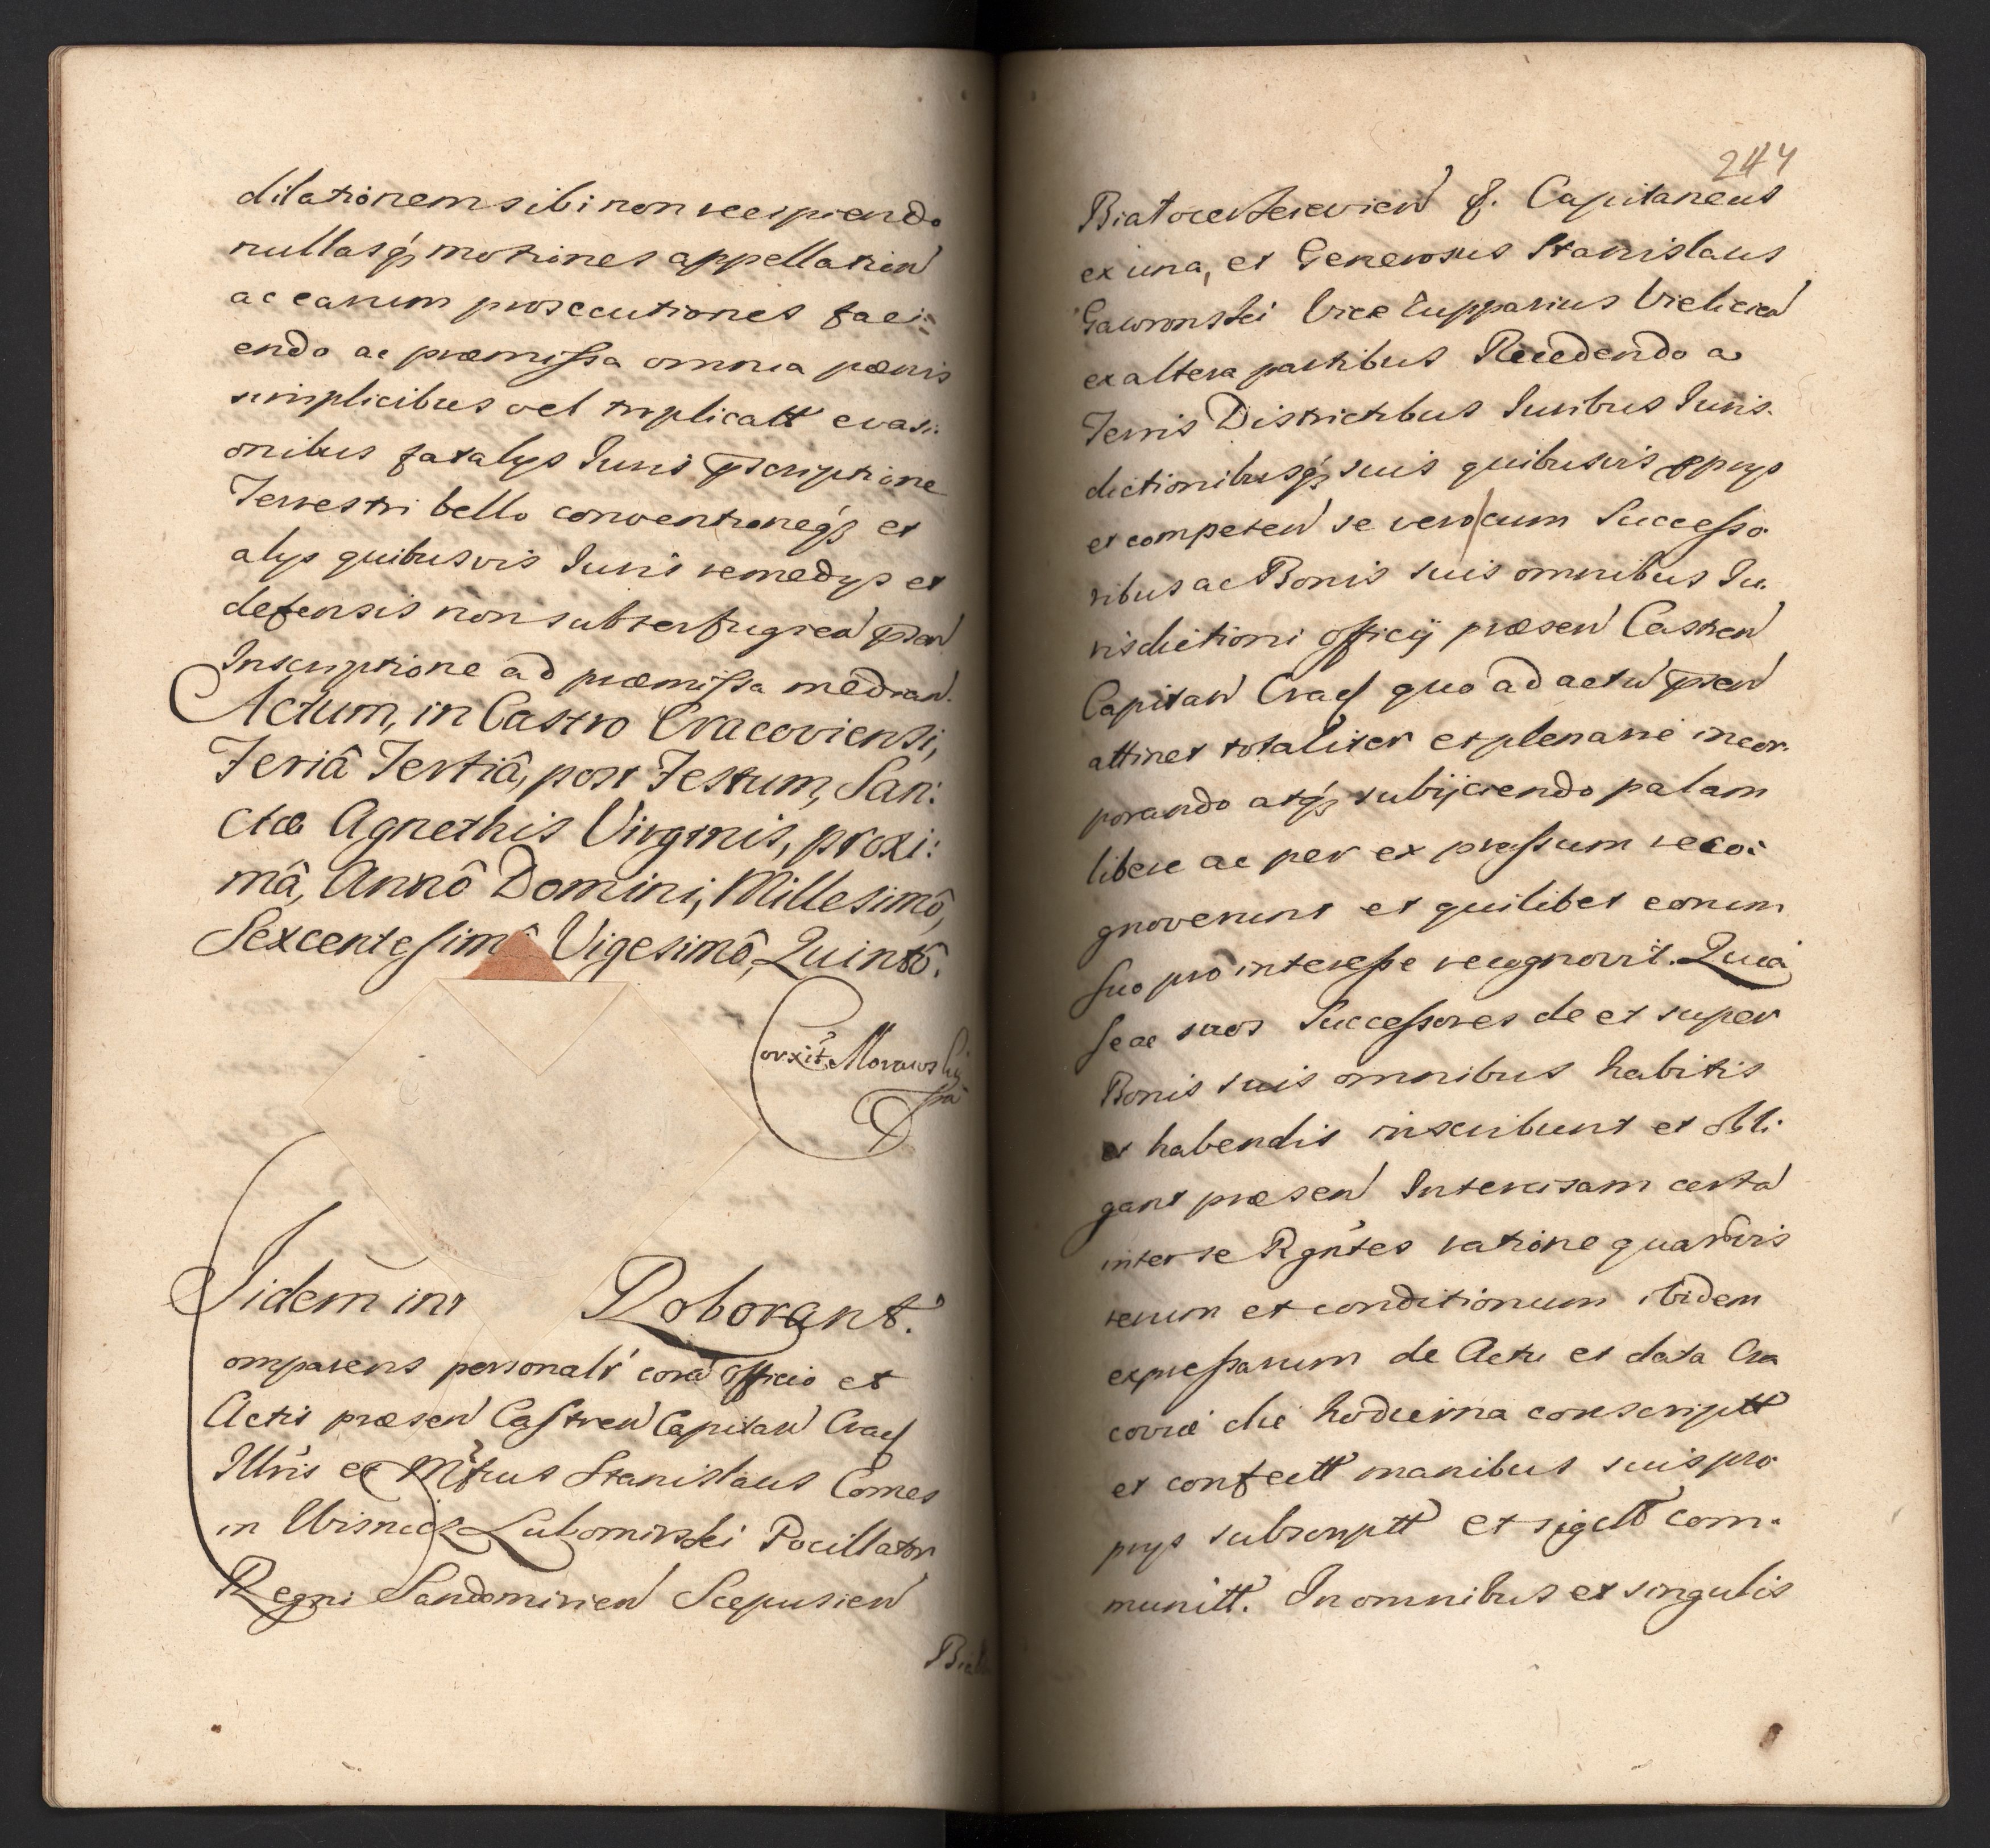 dilationem sibi non recipiendo
nullasq́ꝫ motiones appellation
ac earum prosecutiones faci:
endo ac præmissa omnia pœnis
simplicibus vel triplicatt evasi:
onibus fatalÿs Juris pscriptione
Terrestri bello conventioneq́ꝫ et
alÿs quibusvis Juris remedÿs et
defensis non subterfugien psen
Inscriptione ad præmissa median.
Actum, in Castro Cracoviensi,
Feriâ Tertiâ, post Festum, San:
ctæ Agnethis Virginis, proxi:
mâ, Annô Domini, Millesimô,
Sexcentesimô Vigesimô, Quintô.
Corxit Morawskÿ
Fidem
Roborant.
omparens personalr corã Officio et
Actis præsen Castren Capitan Crac
Illris et Mfcus Stanislaus Comes
in Wisnicz Lubomirski Pocillator
Regni Sandomirien Scepusien
244
Biatocerkievien &. Capitaneus
ex una, et Generosus Stanislaus
Gawronski Vice Zupparius Vielicien
ex altera partibus Recedendo a
Terris Districtibus Juribus Juris.
dictionibusq́ꝫ suis quibusvis pprÿs
et competen se vero cum Successo.
ribus ac Bonis suis omnibus Ju.
risdictioni officÿ præsen Castren
Capitan Crac quo ad actũ psen
attinet totaliter et plenarie incor.
porando atq́ꝫ subÿciendo palam
libere ac per expressum reco:
gnoverunt et quilibet eorum
suo pro interesse recognovit. Quia
se ac suos Successores de et super
Bonis suis omnibus habitis
et habendis inscribunt et obli.
gant præsen Intercisam certã
inter se Rgńtes ratione quarũvis
rerum et conditionum ibidem
expressarum de Actu et data Cra
coviæ die hodierna conscriptt
et confectt manibus suis pro.
prÿs subscriptt et sigill com.
munitt. In omnibus et singulis